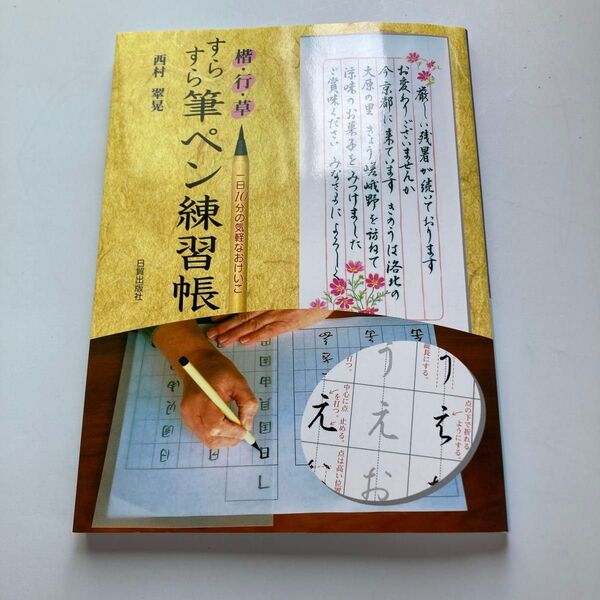 楷・行・草
すらすら筆ペン練習帳
西村 翠晃
一日10分の気軽なおけいこ
日貿出版社
厳しい残暑が続いております
お変わりございませんか
今京都に来ています きのうは洛北の
大原の里 きょう嵯峨野を訪ねて
涼味のお菓子をみつけました
ご賞味ください みなさまによろしく
点の下で折れる
ようにする。
中心に点
を打つ。
止める。
点は高い位置
う
え
お
え
え